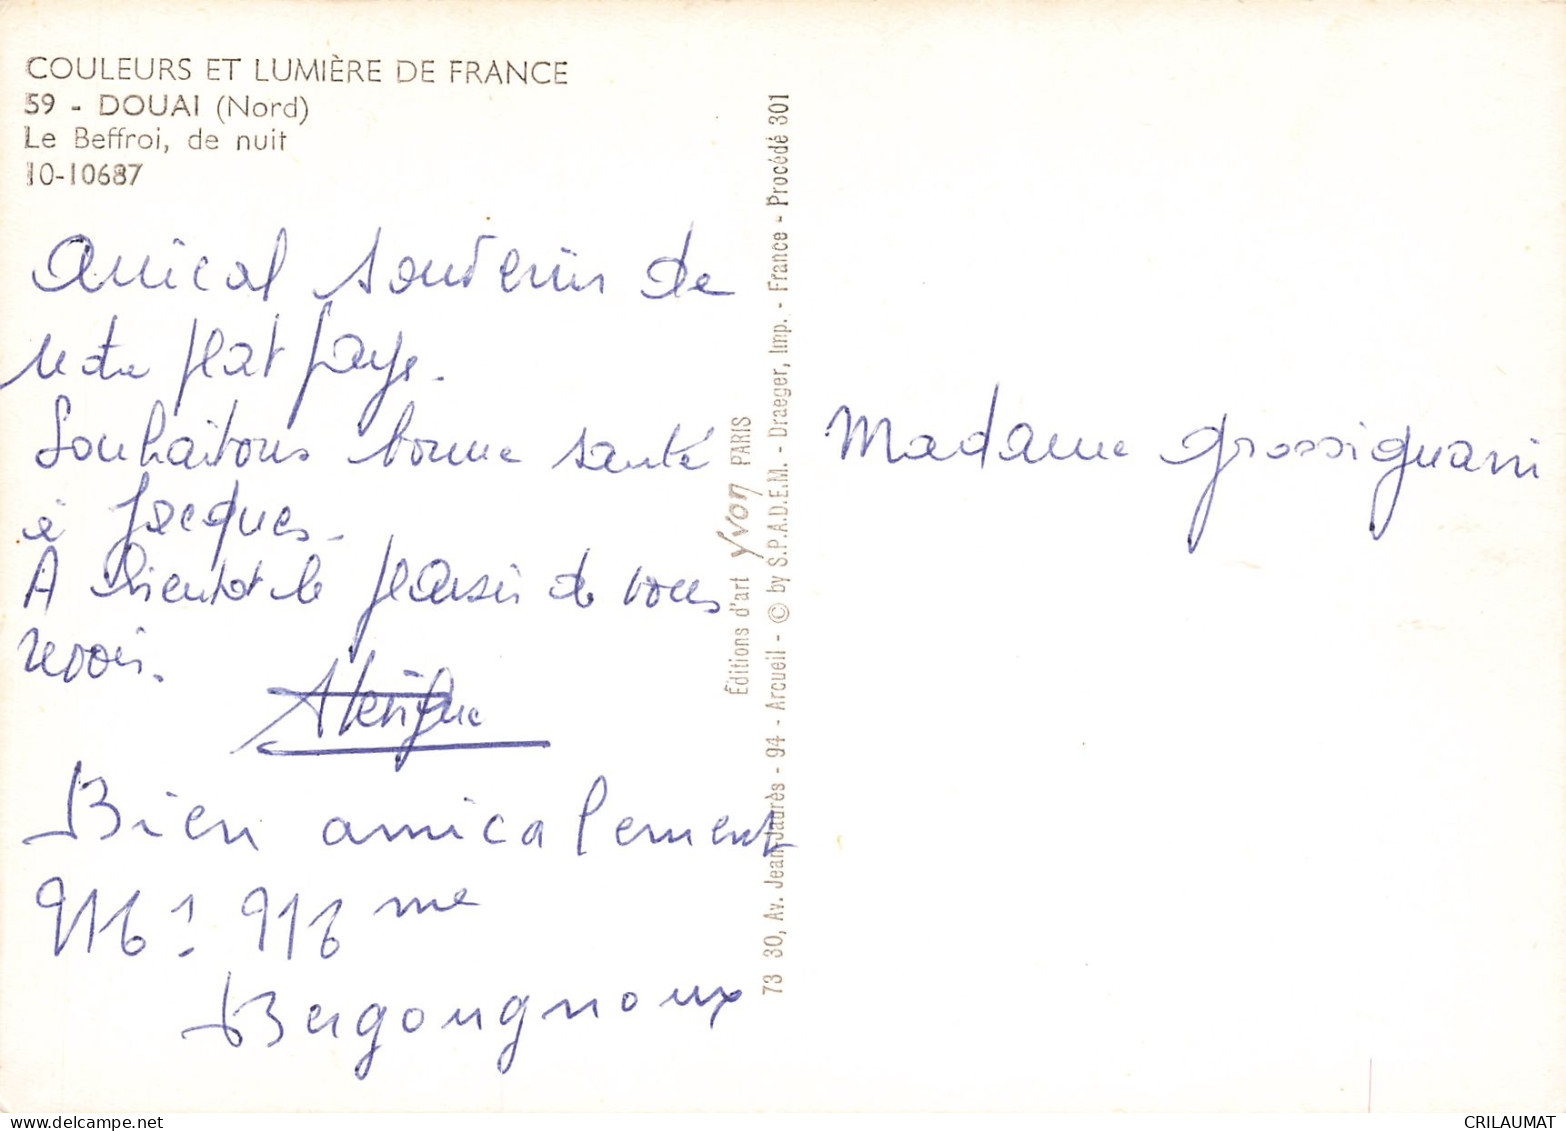 COULEURS ET LUMIÈRE DE FRANCE
59 - DOUAI (Nord)
Le Beffroi, de nuit
10-10687
Amical souvenir de
notre plat pays.
Souhaitons bonne santé
à Jacques.
A bientot le plaisir de vous
revoir.
Bien amicalement
Bergougnoux
Éditions d'art YVON PARIS
73 30, Av. Jean-Jaurès - 94 - Arcueil - © by S.P.A.D.E.M. - Draeger, Imp. - France - Procédé 301
Madame Grossignani
CRILAUMAT